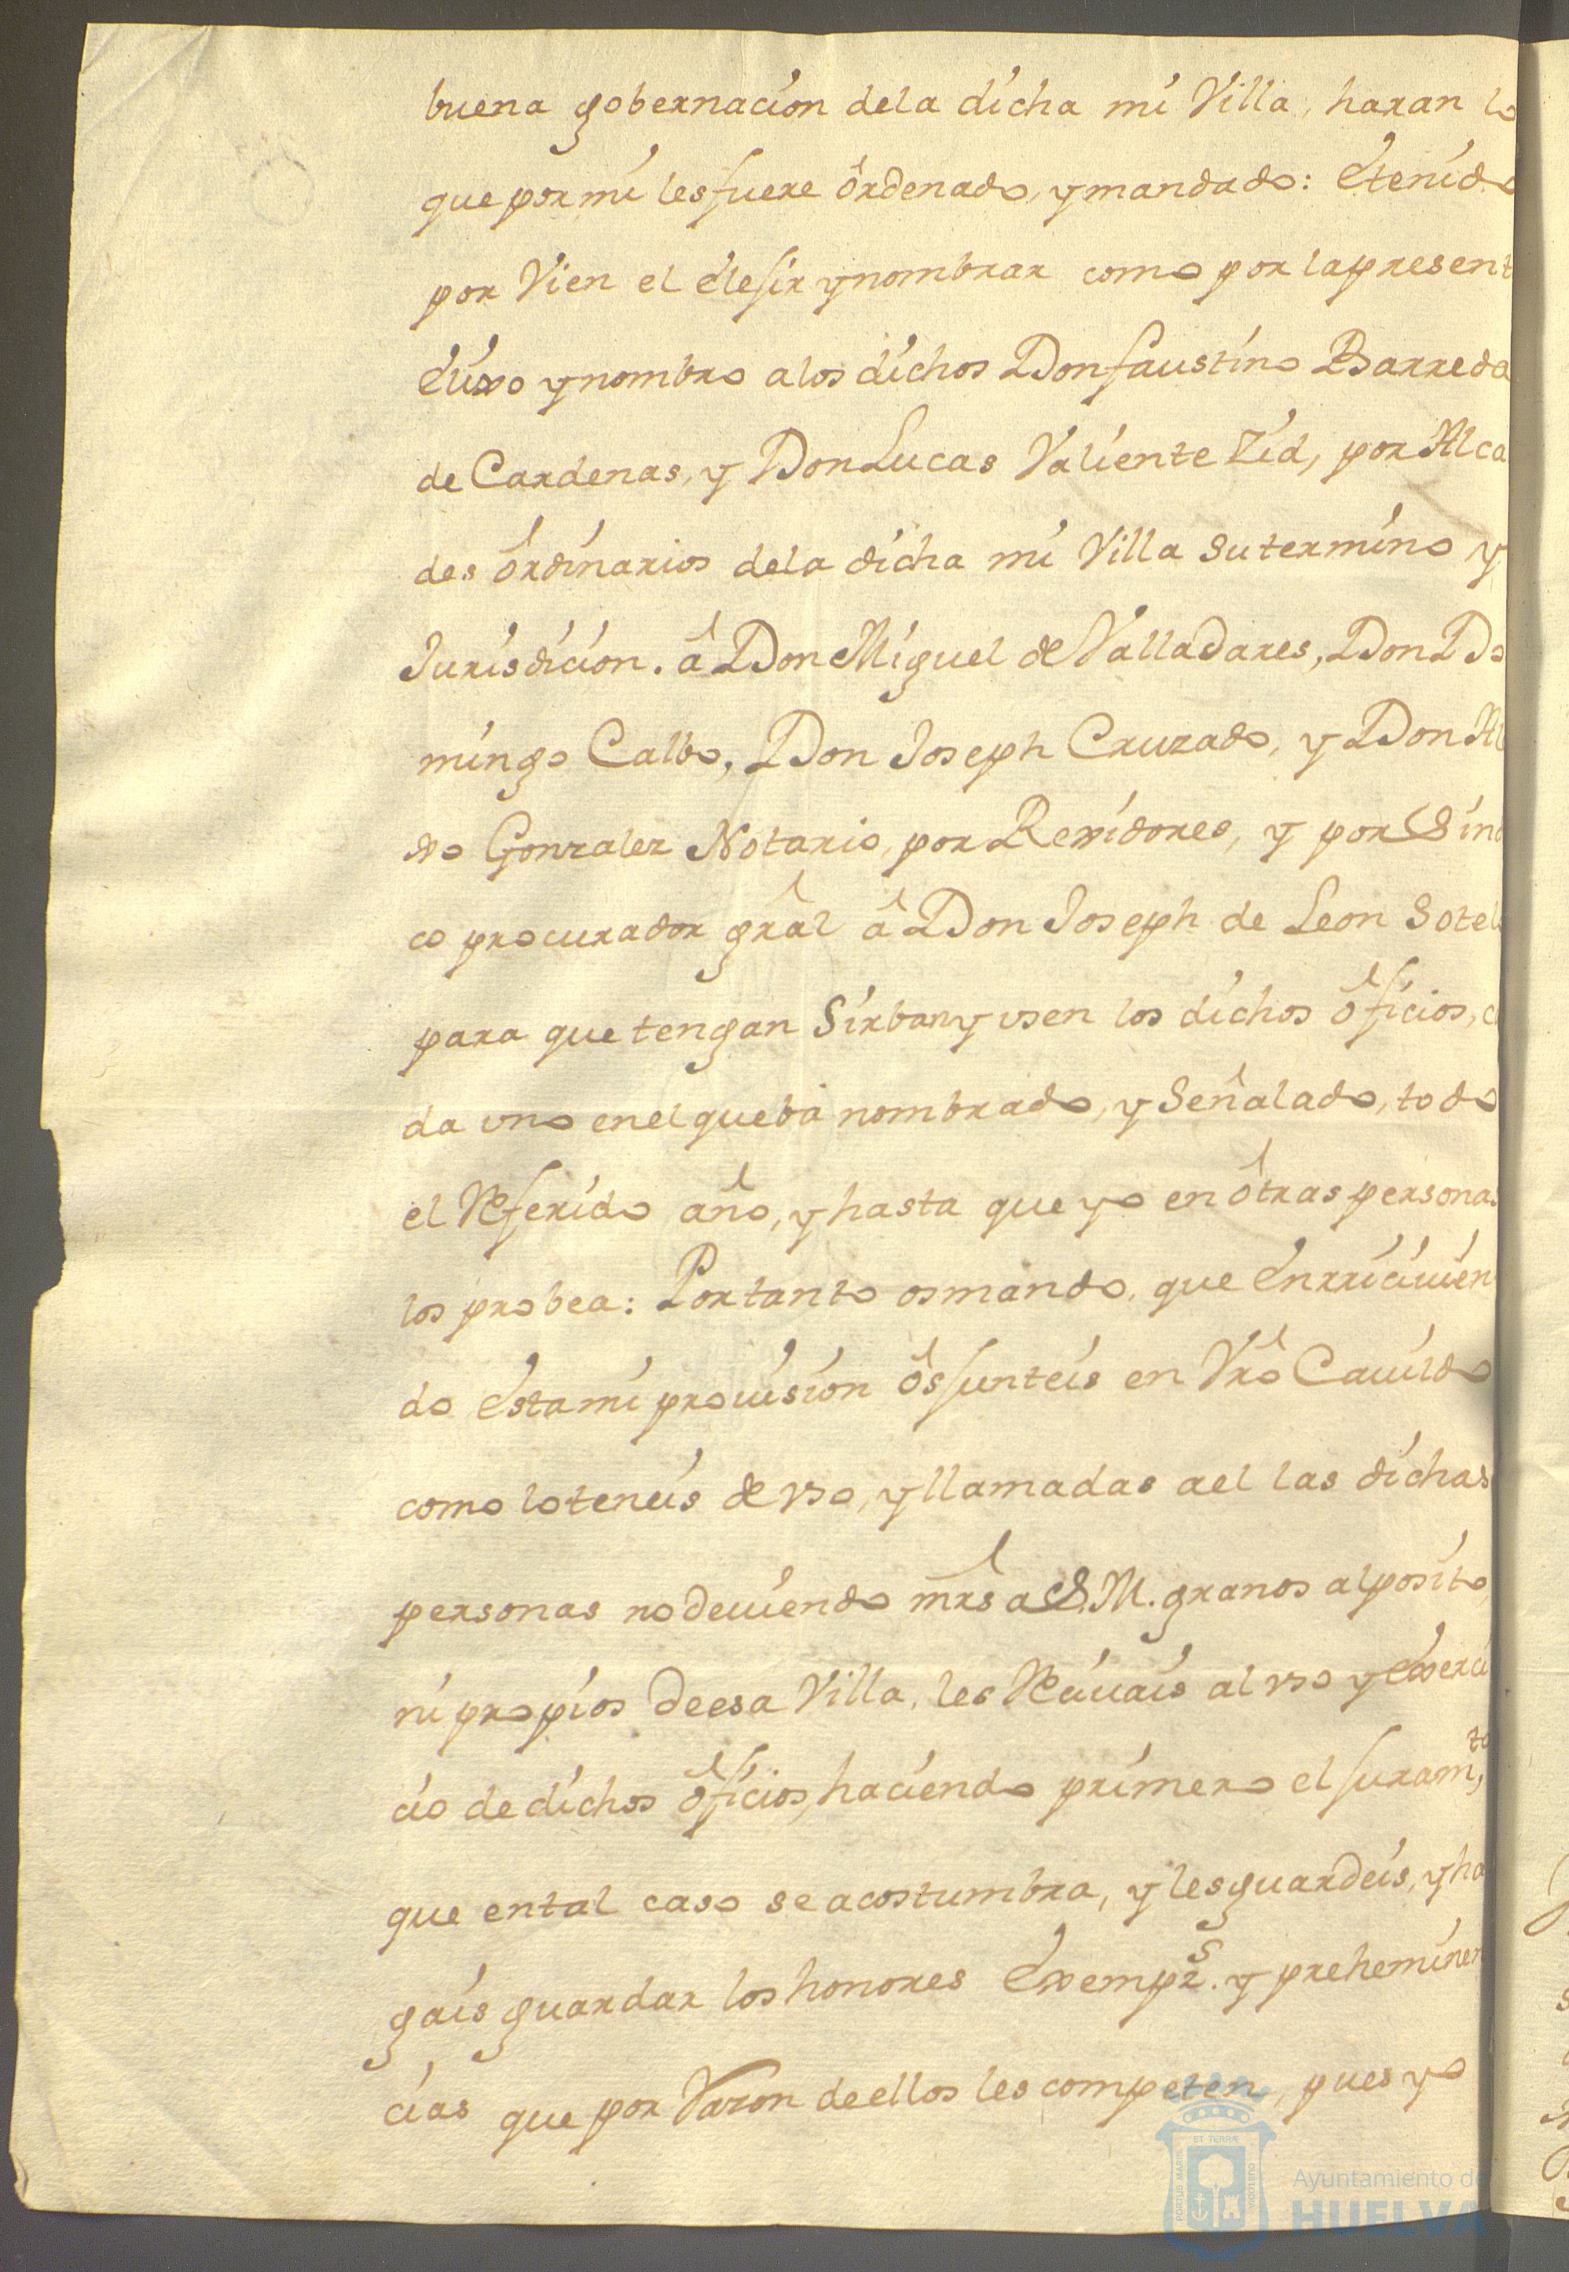 buena gobernacion dela dicha mi Villa, haran lo
que por mi les fuere ôrdenado, y mandado: étenido
por Vien el élejir y nombrar como por la present
élixo y nombro a los dichos Don faustino Barreda
de Cardenas, y Don Lucas Valiente Zid, por Alca
des ôrdinarios dela dicha mi Villa su termino y
Jurisdicion. â Don Miguel de Valladares, Don Do
mingo Calbo, Don Joseph Cruzado, y Don Al
Gonzalez Notario, por Rexidores, y por Sind
co procurador grâl â Don Joseph de Leon Sotelo
para que tengan Sirban y usen los dichos ôficios, ca
da uno en el que bá nombrado, y Señalado, todo
el Referido año, y hasta que yo en ôtras personas
los probea: Por tanto os mando, que énrriciuien
do ésta mi prouision ôs junteis en Vrô Cauildo
como lo teneis de vso, y llamadas a el las dichas
personas no deuiendo mrs̃ a S. M. granos al posito,
ni propios de esa Villa, les Reciuais al vso y éxerci
cio de dichos ôficios, haciendo primero el juram,to
que en tal caso se acostumbra, y les guardeis, y ha
gais guardar los honores éxemp.s y preheminen
cias que por Razon de ellos les competen, pues yo
ET TERRÆ
PORTUS MARIS
CUSTODIA
Ayuntamiento de
HUELVA